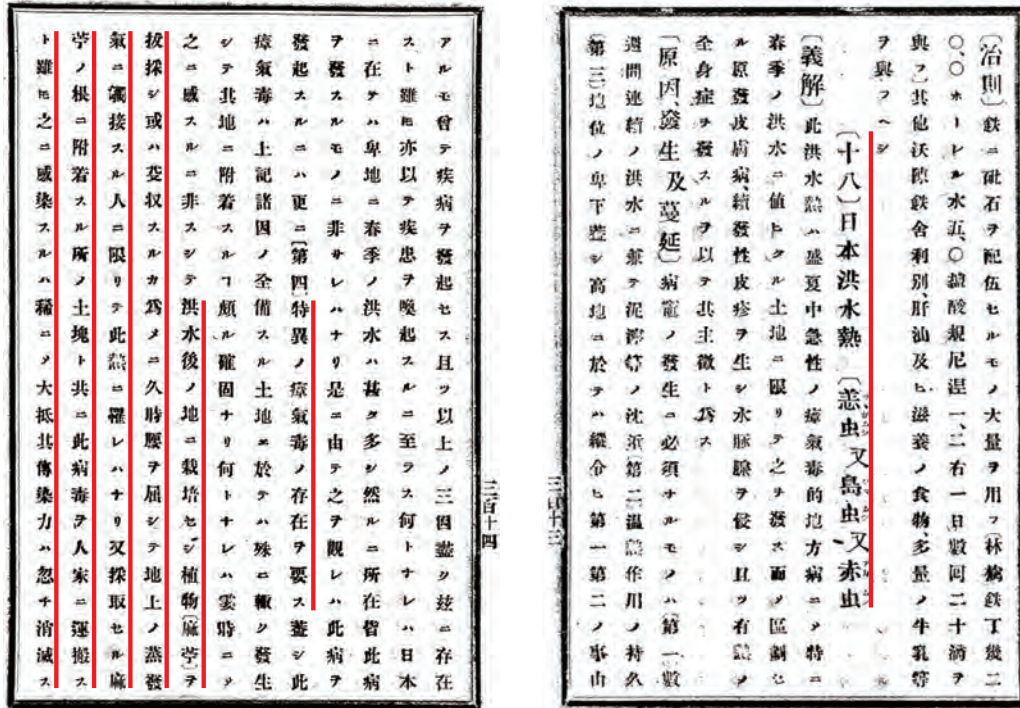 〔治則〕鉄ニ砒石ヲ配伍セルモノ大量ヲ用フ(林檎鉄丁幾二
〇、〇ホーレル水五、〇鹽酸規尼涅一、二右一日數回二十滴ヲ
與フ)其他沃陳鉄舍利別、肝油及ヒ滋養ノ食物、多量ノ牛乳等
ヲ與フヘシ
〔十八〕日本洪水熱 〔恙虫又島虫又赤虫
〔義解〕此洪水熱ハ盛夏中急性ノ瘴氣毒的地方病ニメ特ニ
春季ノ洪水ニ値ヒタル土地ニ限リテ之ヲ發ス而メ區劃セ
ル原發皮膚病、續發性皮疹ヲ生シ水脉腺ヲ侵シ且ツ有熱ノ
全身症ヲ發スルヲ以テ其主徴ト爲ス
〔原因、發生及蔓延〕病竈ノ發生ニ必須ナルモノハ〔第一〕數
週間連續ノ洪水ニ兼テ泥濘等ノ沈漬〔第二〕温熱作用ノ持久
〔第三〕地位ノ卑下蓋シ高地ニ於テハ縱令ヒ第一第二ノ事由
三百十三
アルモ曾テ疾病ヲ發起セス且ツ以上ノ三因盡ク玆ニ存在
スト雖㐧亦以テ疾患ヲ喚起スルニ至ラス何トナレハ日本
ニ在テハ卑地ニ春季ノ洪水ハ甚タ多シ然ルニ所在皆此病
ヲ發スルモノニ非サレハナリ是ニ由テ之ヲ觀レハ此病ヲ
發起スルニハ更ニ〔第四〕特異ノ瘴氣毒ノ存在ヲ要ス蓋シ此
瘴氣毒ハ上記諸因ノ全備スル土地ニ於テハ殊ニ輙ク發生
シテ其地ニ附着スルヿ頗ル確固ナリ何トナレハ霎時ニメ
之ニ感スルニ非スシテ洪水後ノ地ニ栽培セシ植物〔麻苧〕ヲ
拔採シ或ハ芟収スルカ爲メニ久時腰ヲ屈シテ地上ノ蒸發
氣ニ觸接スル人ニ限リテ此熱ニ罹レハナリ又採取セル麻
苧ノ根ニ附着スル所ノ土塊ト共ニ此病毒ヲ人家ニ運搬ス
ト雖𪜈之ニ感染スルハ稀ニメ大抵其傳染力ハ忽チ消滅ス
三百十四